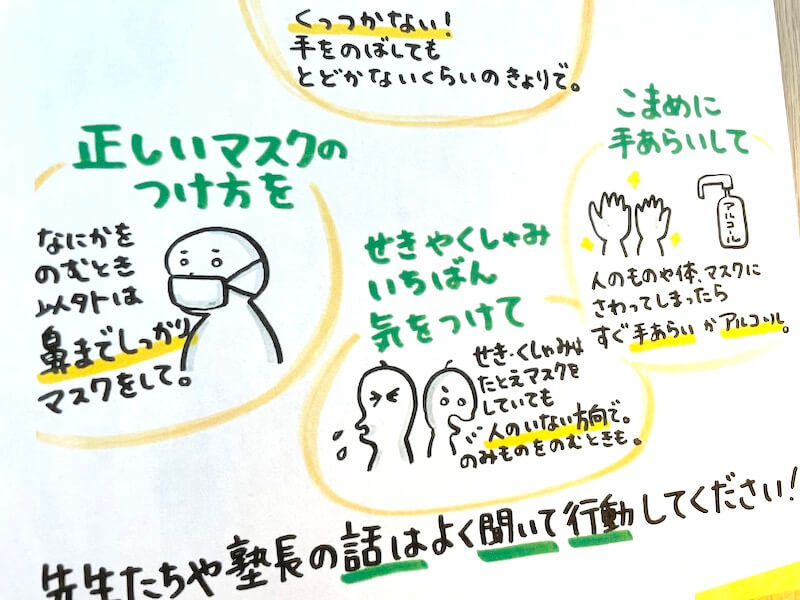 くっつかない!
手をのばしても
とどかないくらいのきょりで。
正しいマスクの
つけ方を
なにかを
のむとき
以外は
鼻までしっかり
マスクをして。
せきやくしゃみ
いちばん
気をつけて
せき・くしゃみは
たとえマスクを
していても
人のいない方向で。
のみものをのむときも。
こまめに
手あらいして
アルコール
人のものや体、マスクに
さわってしまったら
すぐ手あらいかアルコール。
先生たちや塾長の話はよく聞いて行動してください!